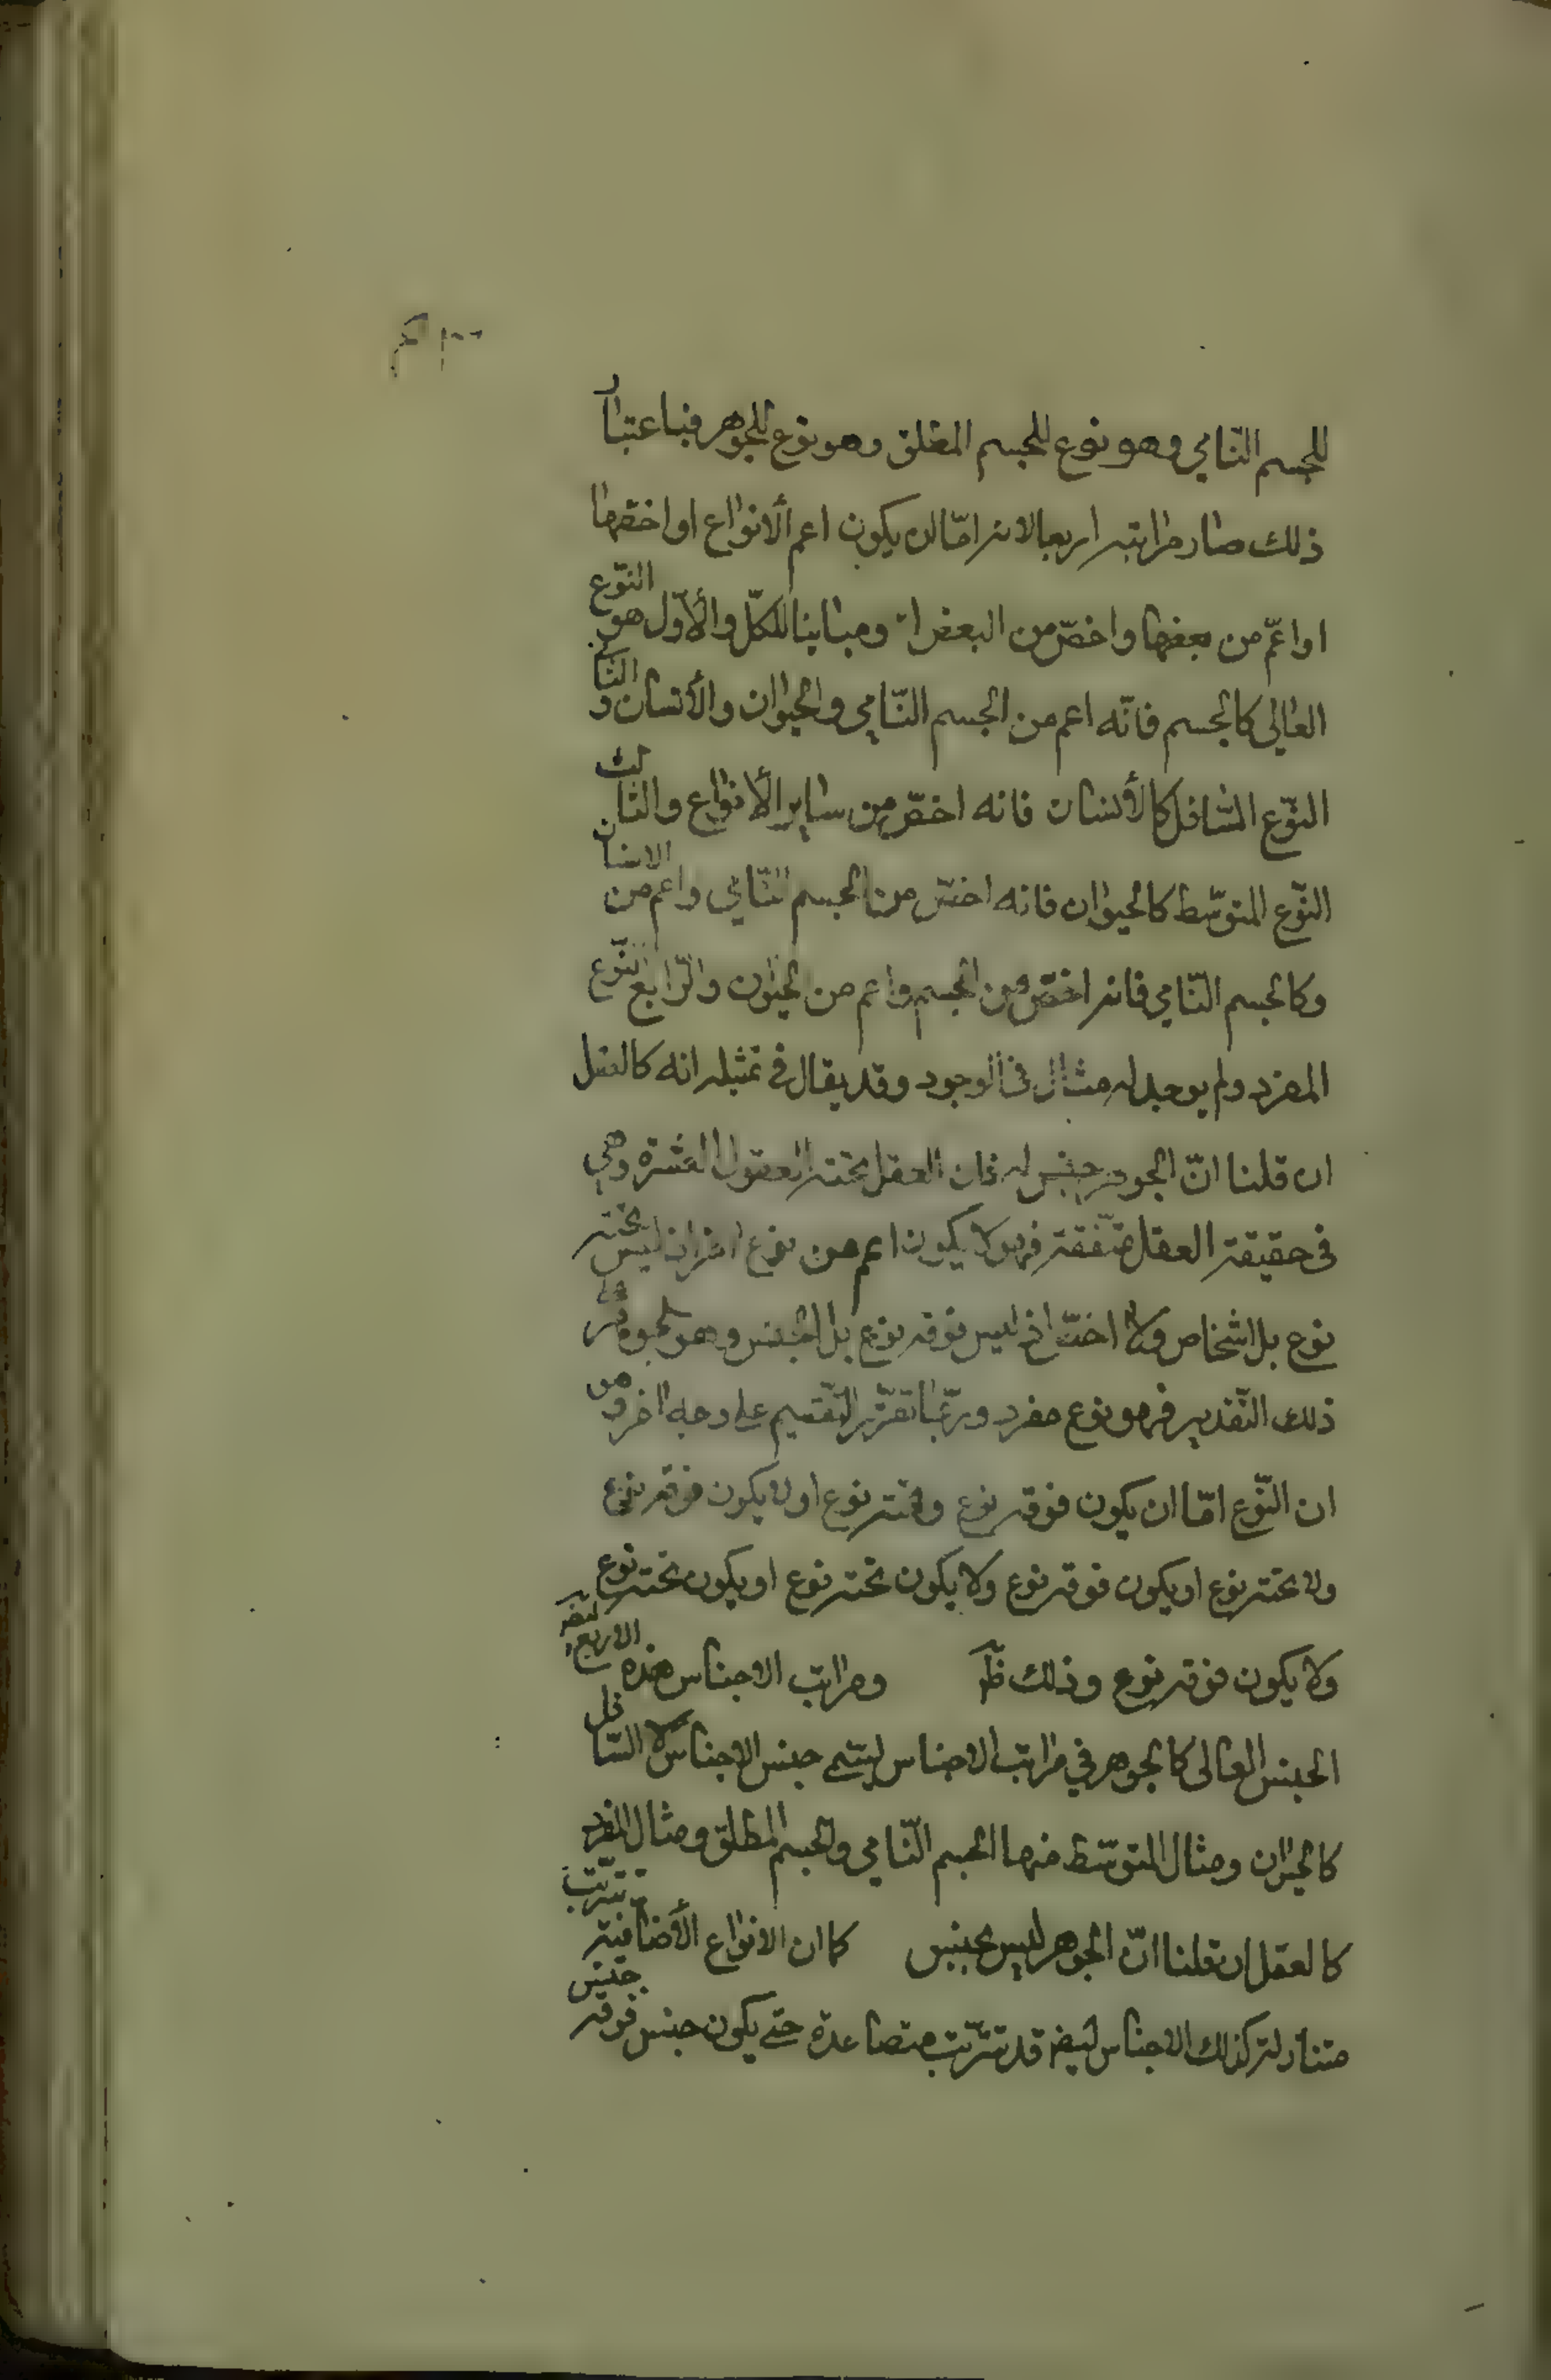 للجسم النّامي وهو نوع للجسم المطلق وهو نوع للجوهر فباعتبار
ذلك صار مراتبه اربعا لانه امّا ان يكون اعم الانواع او اخصّها
او اعمّ من بعضها واخصّ من البعض او مباينا للكلّ والأوّل هو النّوع
العالى كالجسم فانّه اعم من الجسم النّامي والحيوان والأنسان والثاني
النّوع السّافل كالأنسان فانه اخصّ من ساير الأنواع والثالث
النّوع المتوسّط كالحيوان فانه اخصّ من الجسم النّامي واعم من الانسان
وكالجسم النّامي فانه اخصّ من الجسم واعم من الحيوان والرّابع النّوع
المفرد ولم يوجد له مثال فى الوجود وقد يقال فى تمثيله انه كالعقل
ان قلنا انّ الجوهر جنس له فان العقل تحته العقول العشرة وهي
فى حقيقة العقل متّفقة فهو لا يكون اعم من نوع اخر اذ ليس تحته
نوع بل اشخاص ولا اخصّ اذ ليس فوقه نوع بل الجنس وهو الجوهر فعلى
ذلك التّقدير فهو نوع مفرد وربّما تقرّر التّقسيم على وجه اخر وهو
ان النّوع امّا ان يكون فوقه نوع وتحته نوع او لا يكون فوقه نوع
ولا تحته نوع او يكون فوقه نوع ولا يكون تحته نوع او يكون تحته نوع
ولا يكون فوقه نوع وذلك ظَ ومراتب الاجناس ايضَ هذه الاربع
الجنس العالى كالجوهر في مراتب الاجناس ليسّمى جنس الاجناس لا السّافل
كالحيوان ومثال المتوسّط منها الجسم النّامي والجسم المطلق ومثال المفرد
كالعقل ان قلنا انّ الجوهر ليس بجنس كما ان الانواع الأضافية تترتّب
متنازلة كذلك الاجناس ايضه قد تترتّب متصاعدة حتى يكون جنس فوقه جنس